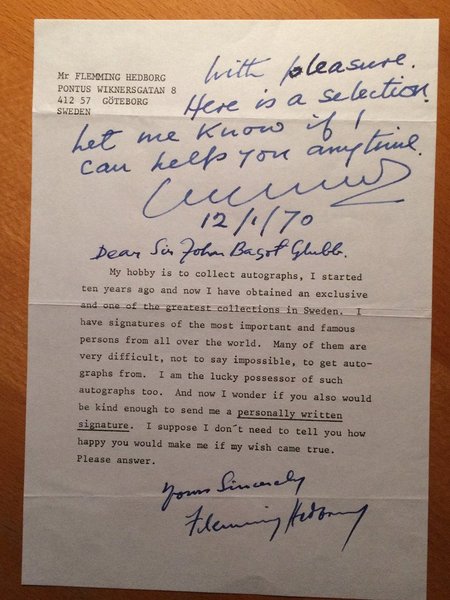 Mr FLEMMING HEDBORG
PONTUS WIKNERSGATAN 8
412 57 GÖTEBORG
SWEDEN
With pleasure.
Here is a selection.
Let me know if I
can help you anytime.
12/1/70
Dear Sir John Bagot Glubb.
My hobby is to collect autographs, I started
ten years ago and now I have obtained an exclusive
and one of the greatest collections in Sweden. I
have signatures of the most important and famous
persons from all over the world. Many of them are
very difficult, not to say impossible, to get auto-
graphs from. I am the lucky possessor of such
autographs too. And now I wonder if you also would
be kind enough to send me a personally written
signature. I suppose I don´t need to tell you how
happy you would make me if my wish came true.
Please answer.
Yours Sincerely
Flemming Hedborg